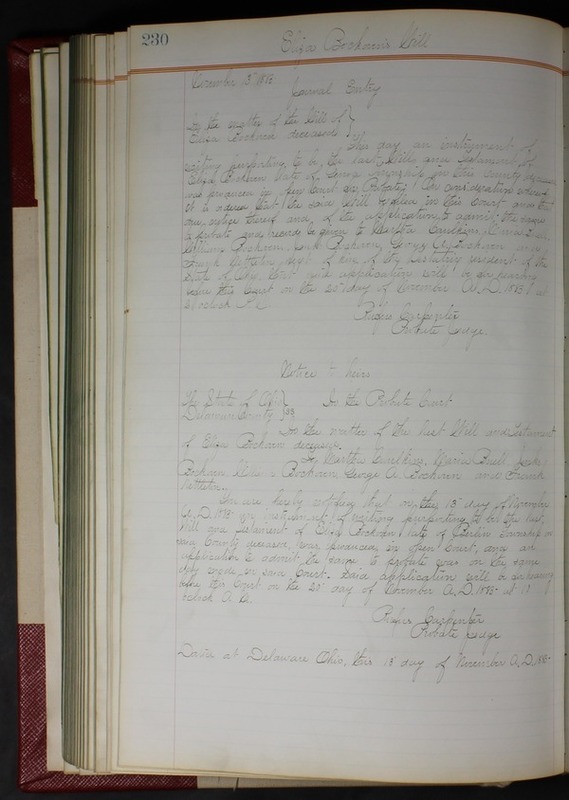 230
Eliza Bockoven's Will
November 13" 1883
Journal Entry
In the matter of the Will of
Eliza Bockoven deceased
This day an instrument of
writing purporting to be the last Will and Testament of
Eliza Bockoven late of Township in this County deceased
was produced in open Court for Probate; On consideration whereof
it is ordered that the said Will be filed in this Court and that
due notice thereof and of the application to admit the same
to probate and record be given to Martha Caulkins, Maria
William Bockoven, Bockoven, George A. Bockoven and
Frank next of kin of the testatrix resident of the
State of Ohio, that said application will be for hearing
before this Court on the 20" day of November A.D. 1883 at
o'clock
Rufus Carpenter
Probate Judge.
Notice to heirs
The State of Ohio
Delaware County } ss
In the Probate Court
In the matter of the last Will and Testament
of Eliza Bockoven deceased.
To Martha Caulkins, Maria
Bockoven, Bockoven, George A. Bockoven and Frank
You are hereby notified that on this 13" day of November
A.D. 1883 an instrument of writing purporting to be the last
Will and Testament of Eliza Bockoven late of Berlin Township in
said County deceased, was produced in open Court, and an
application to admit the same to probate was on the same
day made in said Court. Said application will be for hearing
before this Court on the 20" day of November A.D. 1883 at 10
o'clock A.M.
Rufus Carpenter
Probate Judge
Dated at Delaware Ohio, this 13" day of November A.D. 1883